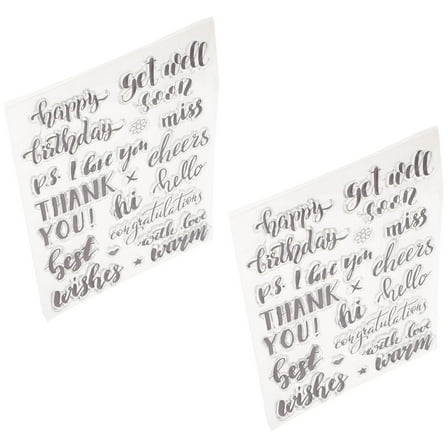 happy
birthday
get well
soon
miss
p.s. I love you
cheers
THANK
YOU!
hi
hello
congratulations
best
wishes
with love
warm
happy
birthday
get well
soon
miss
p.s. I love you
cheers
THANK
YOU!
hi
hello
congratulations
best
wishes
with love
warm